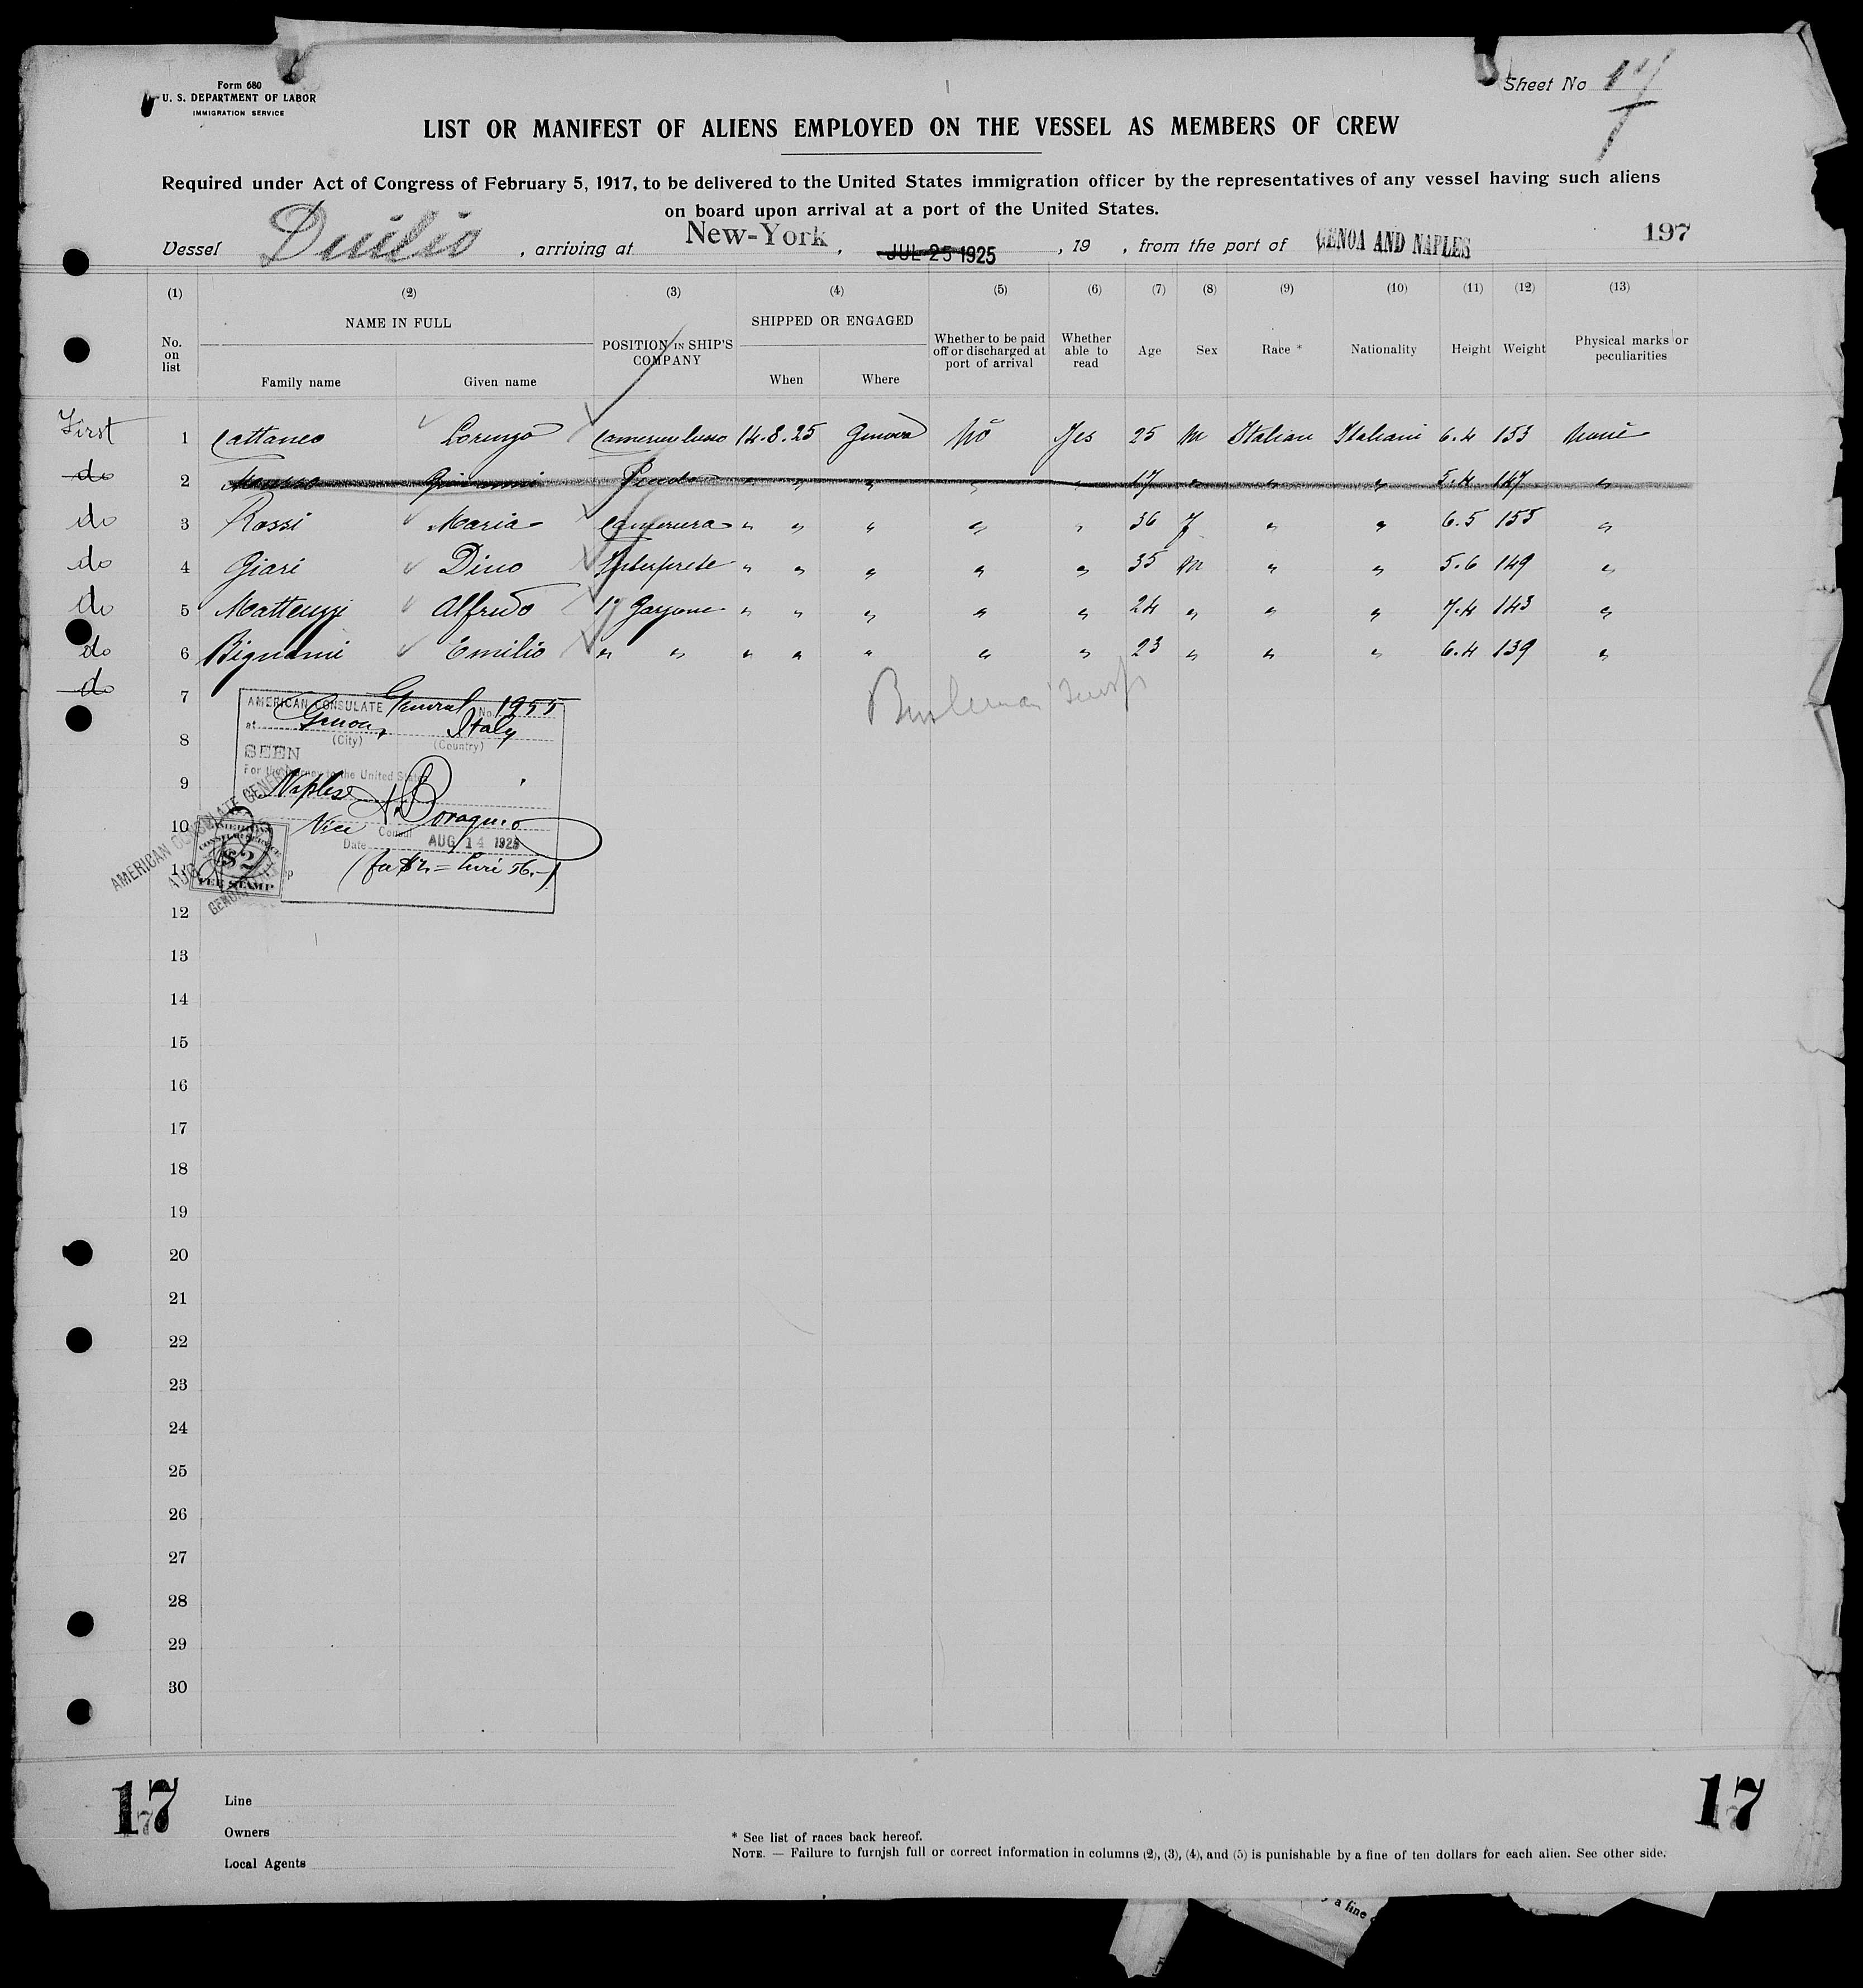 Form 680
U. S. DEPARTMENT OF LABOR
IMMIGRATION SERVICE
Sheet No
LIST OR MANIFEST OF ALIENS EMPLOYED ON THE VESSEL AS MEMBERS OF CREW
Required under Act of Congress of February 5, 1917, to be delivered to the United States immigration officer by the representatives of any vessel having such aliens
on board upon arrival at a port of the United States.
Vessel Duilio , arriving at New-York , JUL 25 1925 , 19 , from the port of GENOA AND NAPLES 197
(1) (2) (3) (4) (5) (6) (7) (8) (9) (10) (11) (12) (13)
No. on list NAME IN FULL Family name Given name POSITION IN SHIP'S COMPANY SHIPPED OR ENGAGED When Where Whether to be paid off or discharged at port of arrival Whether able to read Age Sex Race * Nationality Height Weight Physical marks or peculiarities
First 1 Cattaneo Lorenzo Cameriere lusso 14.8.25 Genova No Yes 25 M Italian Italiani 6.4 153 None
do 2 Giovanni " " " " " 17 " " " 5.4 147 "
do 3 Rossi Maria Cameriera " " " " " 36 f " " 6.5 155 "
do 4 Giari Dino Interprete " " " " " 35 M " " 5.6 149 "
do 5 Matteuzzi Alfredo 1° Garzone " " " " " 24 " " " 7.4 143 "
do 6 Bignami Emilio " " " " " " " 23 " " " 6.4 139 "
do 7
8
9
10
11
12
13
14
15
16
17
18
19
20
21
22
23
24
25
26
27
28
29
30
AMERICAN CONSULATE General No. 1955
at Genoa, Italy
(City) (Country)
SEEN
For the journey to the United States
Naples
A. Boragino
Vice Consul
Date AUG 14 1925
AMERICAN CONSULATE GENERAL
AUG
GENOA
AMERICAN
CONSULAR SERVICE
$2
FEE STAMP
17 17
Line
Owners
Local Agents
* See list of races back hereof.
NOTE. — Failure to furnjsh full or correct information in columns (2), (3), (4), and (5) is punishable by a fine of ten dollars for each alien. See other side.
a fine